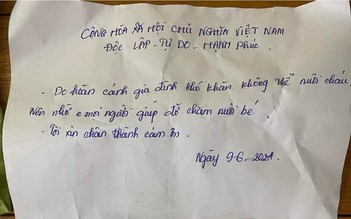 CỘNG HÒA XÃ HỘI CHỦ NGHĨA VIỆT NAM
ĐỘC LẬP - TỰ DO - HẠNH PHÚC.
- Do hoàn cảnh gia đình khó khăn không thể nuôi cháu
Nên nhờ mọi người giúp đỡ chăm nuôi bé.
- Tôi xin chân thành cám ơn.
Ngày 9-6-2021.